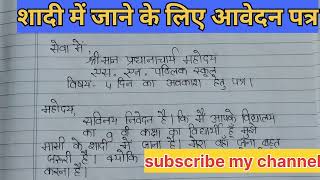 शादी में जाने के लिए आवेदन पत्र
सेवा में,
श्रीमान प्रधानाचार्य महोदय
एस. एन. पब्लिक स्कूल
विषय- 4 दिन का अवकाश हेतु पत्र।
महोदय,
सविनय निवेदन है। कि मैं आपके विद्यालय
का 9 वीं कक्षा का विद्यार्थी हूँ मुझे
मासी के शादी में जाना है। मेरा वहाँ जाना बहुत
जरूरी है। क्योंकि
करना है।
subscribe my channel